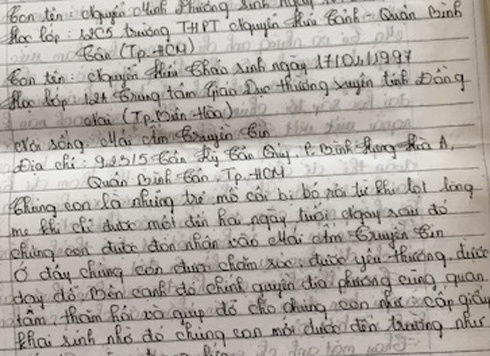 Con tên: Nguyễn Minh Phương sinh ngày
Học lớp: 12C5 trường THPT Nguyễn Hữu Cảnh - Quận Bình
Tân (Tp.HCM)
Con tên: Nguyễn Hữu Thái sinh ngày 17/04/1997
Học lớp: 12A Trung tâm Giáo Dục thường xuyên tỉnh Đồng
Nai (Tp.Biên Hòa)
Nơi sống: Mái ấm Truyền Tin
Địa chỉ: 92315 Tân Kỳ Tân Quý, P. Bình Hưng Hòa A,
Quận Bình Tân, Tp. HCM
Chúng con là những trẻ mồ côi bị bỏ rơi từ khi lọt lòng
mẹ khi chỉ được một đến hai ngày tuổi. Ngay sau đó
chúng con được đón nhận vào Mái ấm Truyền Tin
Ở đây chúng con được chăm sóc, được yêu thương, được
dạy dỗ. Bên cạnh đó chính quyền địa phương cũng quan
tâm, thăm hỏi và giúp đỡ cho chúng con như cấp giấy
khai sinh nhờ đó chúng con mới được đến trường như